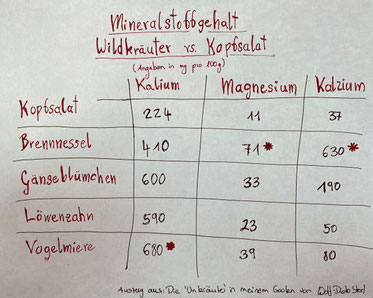 Mineralstoffgehalt
Wildkräuter vs. Kopfsalat
(Angaben in mg pro 100g)
Kalium Magnesium Kalzium
Kopfsalat 224 11 37
Brennnessel 410 71* 630*
Gänseblümchen 600 33 190
Löwenzahn 590 23 50
Vogelmiere 680* 39 80
Auszug aus: Die "Unkräuter" in meinem Garten von